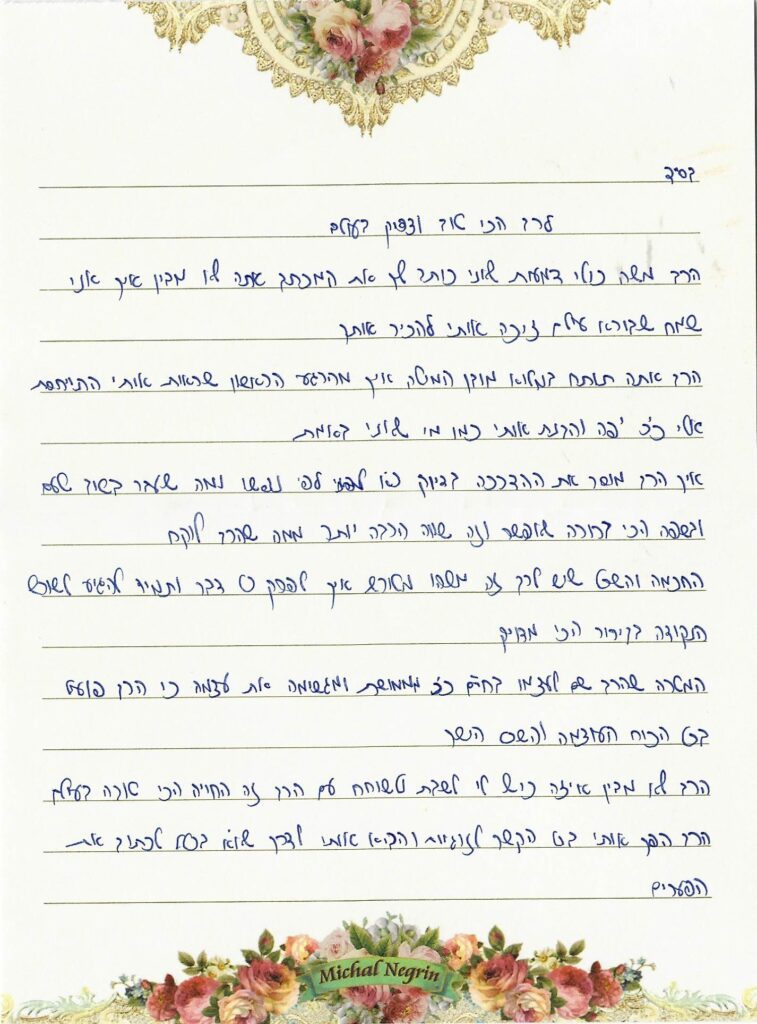 בס"ד
לרב הכי טוב וצדיק בעולם
הרב משה כולי דמעות שאני כותב לך את המכתב אתה לא מבין איך אני
שמח שבורא עולם זיכה אותי להכיר אותך
הרב אתה תותח במלוא מובן המילה איך מהרגע הראשון שראית אותי התייחסת
אלי כ"כ יפה והבנת אותי כמו מי שאני באמת
איך הרב מוסר את ההדרכה בדיוק לפי נפשו ומה שעובר בשוב שעם
ובשפה הכי ברורה שאפשר וזה שווה הרבה יותר ממה שהרב לוקח
החכמה והשכל שיש לרב זה משהו מטורף איך לפרק כל דבר ותמיד להגיע לשורש
הנקודה בבירור הכי מדויק
המטרה שהרב שם לעצמו בחיים כ"כ ממומשת ומגשימה את עצמה כי הרב פועל
בכל הכוח העוצמה והשכל הישר
הרב לא מבין איזה כיף לי לשבת לשוחח עם הרב זה החוויה הכי טובה בעולם
הרב הפך אותי בכל הקשר לזוגיות והביא אותי לדרך שלא בכלל לכתוב את
הפערים
Michal Negrin